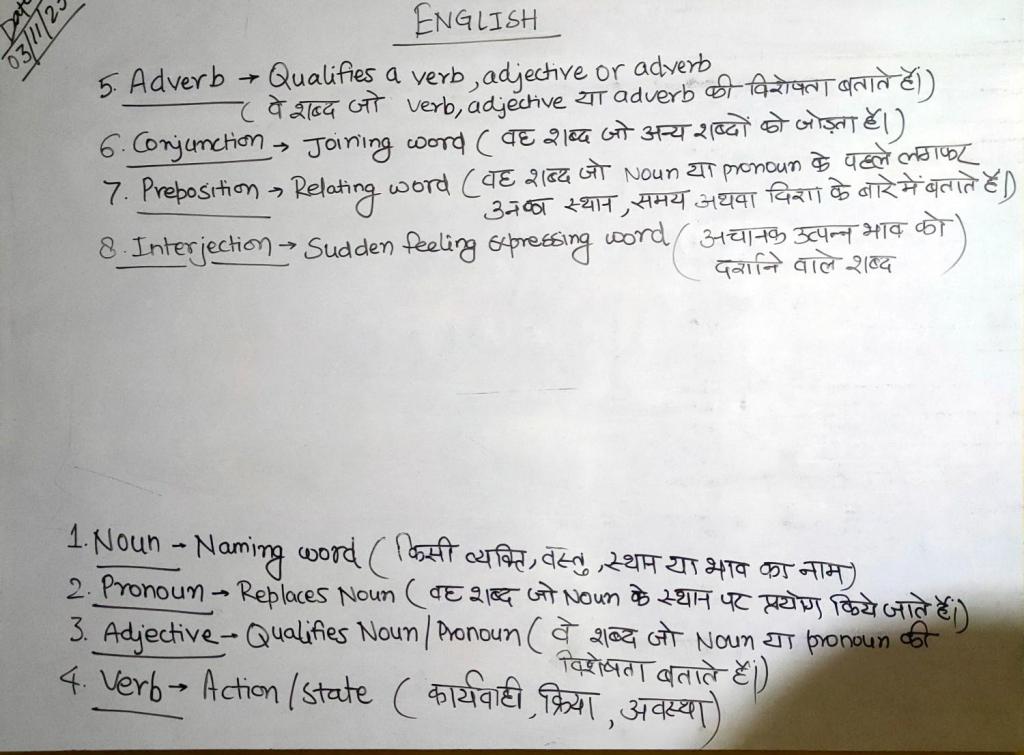 Date
03/11/23
ENGLISH
5. Adverb → Qualifies a verb, adjective or adverb
( वे शब्द जो verb, adjective या adverb की विशेषता बताते हैं।)
6. Conjunction → Joining word ( वह शब्द जो अन्य शब्दों को जोड़ता है।)
7. Preposition → Relating word (वह शब्द जो Noun या pronoun के पहले लगकर
उनका स्थान, समय अथवा दिशा के बारे में बताते हैं।)
8. Interjection → Sudden feeling expressing word ( अचानक उत्पन्न भाव को
दर्शाने वाले शब्द )
1. Noun - Naming word ( किसी व्यक्ति, वस्तु, स्थान या भाव का नाम)
2. Pronoun → Replaces Noun ( वह शब्द जो Noun के स्थान पर प्रयोग किये जाते हैं।)
3. Adjective → Qualifies Noun / Pronoun ( वे शब्द जो Noun या pronoun की
विशेषता बताते हैं।)
4. Verb → Action / State ( कार्यवाही, क्रिया, अवस्था)